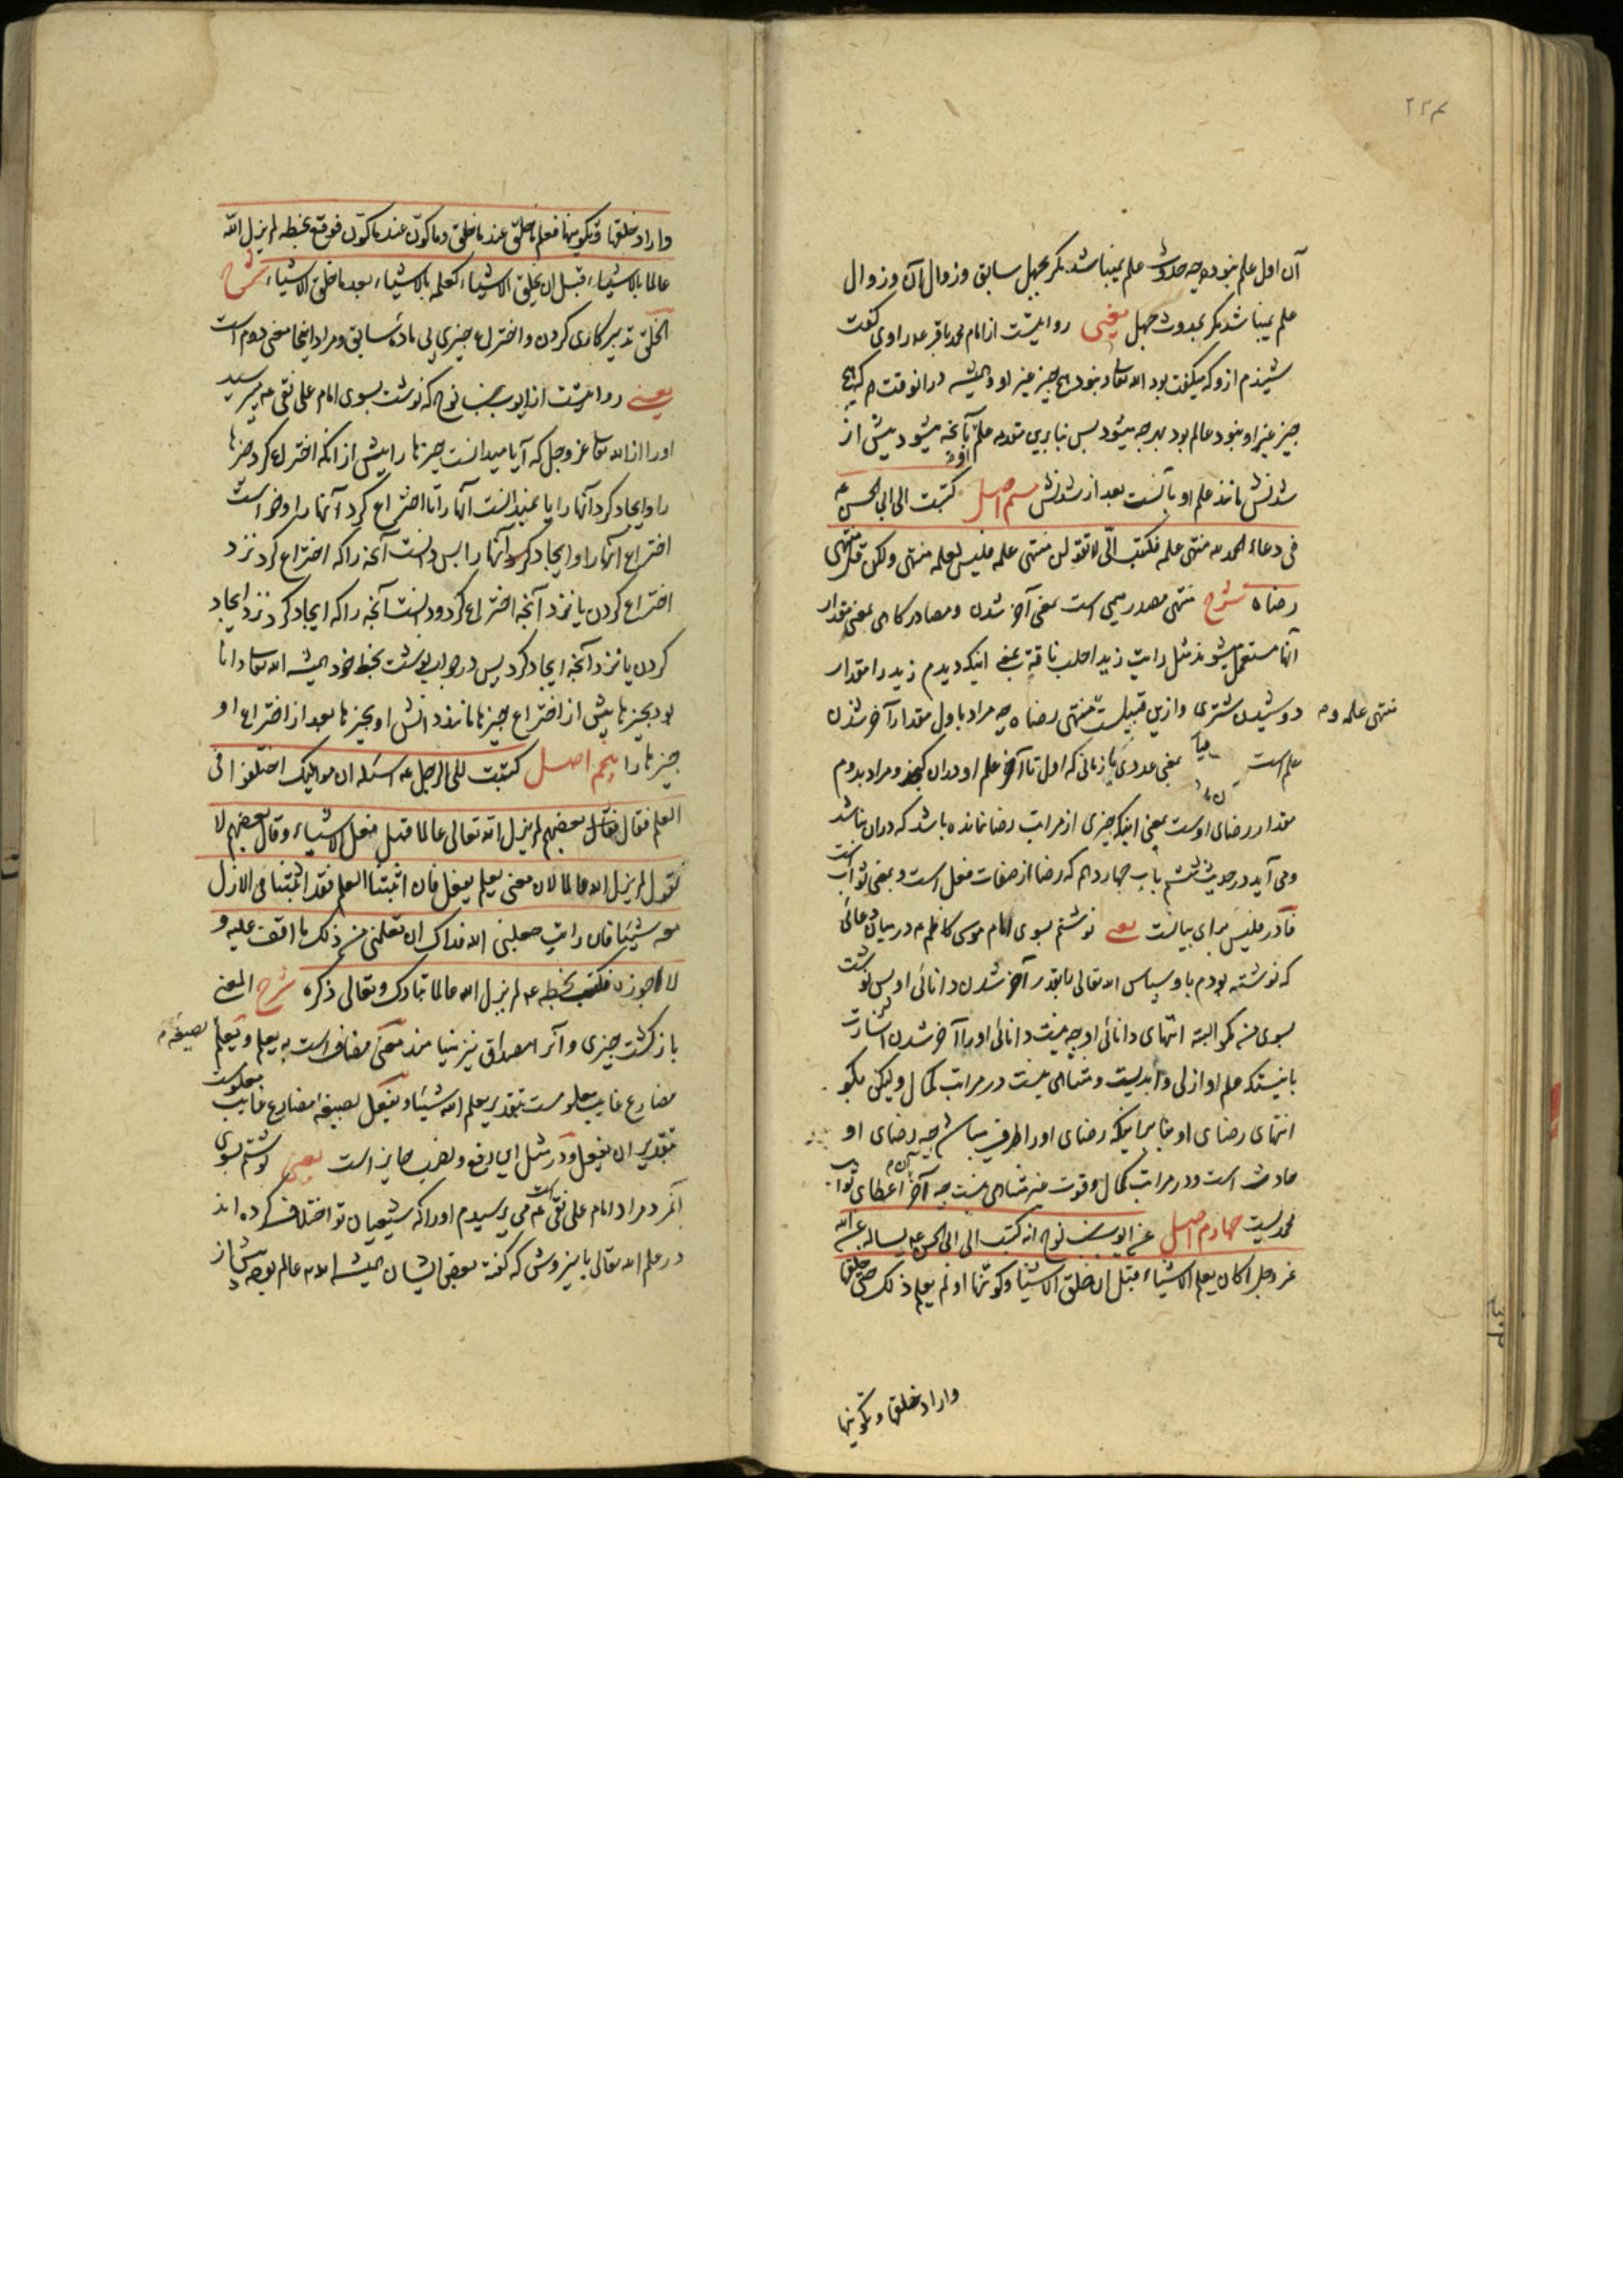 ۲۲۴
آن اول علم نبوده چه حدوث علم نمیباشد مگر بجهل سابق و زوال آن و زوال
علم نمیباشد مگر بحدوث جهل یعنی روایتست از امام محمد باقر ع راوی گفت
شنیدم ازو که میگفت بود الله تعالی و نبود هیچ چیز غیر او و همیشه در انوقت که هیچ
چیز غیر او نبود عالم بود بهر چه میشود پس بنابرین مقدمه علم او بآنچه میشود پیش از
شدنش مانند علم او بآنست بعد از شدنش سیم اصل کتبت الی ابی الحسن ع
فی دعاء الحمد لله منتهی علمه فکتب الیّ لا تقولن منتهی علمه فلیس لعلمه منتهی ولکن قل منتهی
رضاه شرح منتهی مصدر میمی است بمعنی آخر شدن و مصادر کاهی بمعنی مقدار
آنها مستعمل میشوند مثل رایت زیدا حلب ناقة بمعنی اینکه دیدم زید را مقدار
دوشیدن شتری و ازین قبیلست منتهی علمه و منتهی رضاه چه مراد باول مقدار آخر شدن
علم است بمعنی عددی یا زمانی که اول تا آخر علم او دران کنجد و مراد بدوم
مقدار رضای اوست بمعنی اینکه چیزی از مراتب رضا نمانده باشد که دران نباشد
و می آید در حدیث ششم باب چهاردهم که رضا از صفات فعل است و بمعنی ثواب است
فا در فلیس برای بیانست یعنی نوشتم بسوی امام موسی کاظم ع در میان دعائی
که نوشته بودم باو سپاس الله تعالی را بقدر آخر شدن دانائی او پس نوشت
بسوی من که مکو البته انتهای دانائی او چه نیست دانائی او را آخر شدن اشارت
باینستکه علم او ازلی و ابدیست و متناهی نیست در مراتب کمال ولیکن بکو
انتهای رضای او بنابر اینکه رضای او را طرف میباشد چه رضای او
حادث است و در مراتب کمال و قوت غیر متناهی نیست چه آخر آن اعطای ثواب
محدیست چهارم اصل عن ایوب بن نوح انه کتب الی ابی الحسن ع یساله عن الله
عز وجل اکان یعلم الاشیاء قبل ان خلق الاشیا وکونها او لم یعلم ذلک حتی خلقها
واراد خلقها وتکوینها
واراد خلقها وتکوینها فعلم ما خلق عند ما خلق وما کون عند ما کون فوقع بخطه لم یزل الله
عالما بالاشیاء قبل ان یخلق الاشیاء کعلمه بالاشیاء بعد ما خلق الاشیاء شرح
الخلق تدبیر کاری کردن و اختراع چیزی بی ماده سابق و مراد اینجا معنی دوم است
یعنی روایتست از ایوب بن نوح که نوشت بسوی امام علی نقی ع میپرسید
او را از الله تعالی عز وجل که آیا میدانست چیزها را پیش از انکه اختراع کرد چیزها
را و ایجاد کرد آنها را یا نمیدانست آنها را تا اختراع کرد آنها را و خواست
اختراع آنها را و ایجاد کردن آنها را پس دانست آنچه را که اختراع کرد نزد
اختراع کردن یا نزد آنچه اختراع کرد و دانست آنچه را که ایجاد کرد نزد ایجاد
کردن یا نزد آنچه ایجاد کرد پس در جواب نوشت بخط خود همیشه الله تعالی دانا
بود بچیزها پیش از اختراع چیزها مانند دانش او بچیزها بعد از اختراع او
چیزها را پنجم اصل کتبت الی الرجل ع اسئله ان موالیک اختلفوا فی
العلم فقال فقال بعضهم لم یزل الله تعالی عالما قبل فعل الاشیاء وقال بعضهم لا
نقول لم یزل الله عالما لان معنی یعلم یفعل فان اثبتنا العلم فقد اثبتنا فی الازل
معه شیئا فان رایت جعلنی الله فداک ان تعلمنی من ذلک ما اقف علیه و
لا اجوزه فکتب بخطه ع لم یزل الله عالما تبارک وتعالی ذکره شرح المعنی
بازکشت چیزی و آنرا مصداق نیز مینامند معنی مضاف است به یعلم و یعلم بصیغه
مضارع غایب معلومست بتقدیر یعلم الله شیئا و یفعل بصیغه مضارع غایب معلوست
بتقدیر ان یفعل و در مثل این رفع و نصب جایز است یعنی نوشتم بسوی
آنمرد مراد امام علی نقی ع است می پرسیدم او را که شیعیان تو اختلاف کرده اند
در علم الله تعالی باین روش که گفته بعضی ایشان همیشه الله عالم بود پیش از